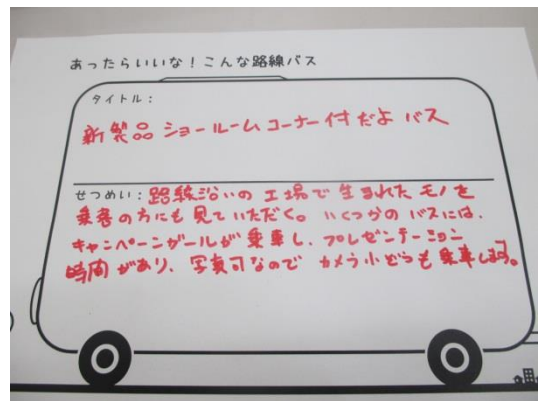 あったらいいな！こんな路線バス
タイトル：
新製品ショールームコーナー付だよバス
せつめい：路線沿いの工場で生まれたモノを
乗客の方にも見ていただく。いくつかのバスには、
キャンペーンガールが乗車し、プレゼンテーション
時間があり、写真可なのでカメラ小ぞうも乗車します。